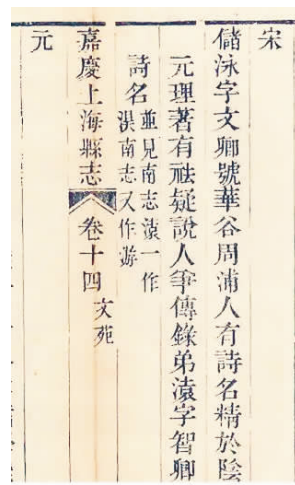 宋
儲泳字文卿號華谷周浦人有詩名精於陰
元理著有祛疑說人爭傳錄弟字智卿
詩名
並見南志一作
南志又作游
嘉慶上海縣志 卷十四 文苑
元